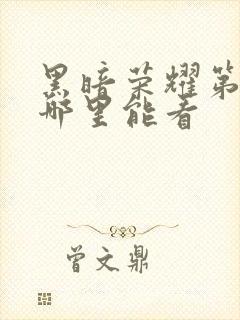 黑暗荣耀第
哪里能看
曾文鼎